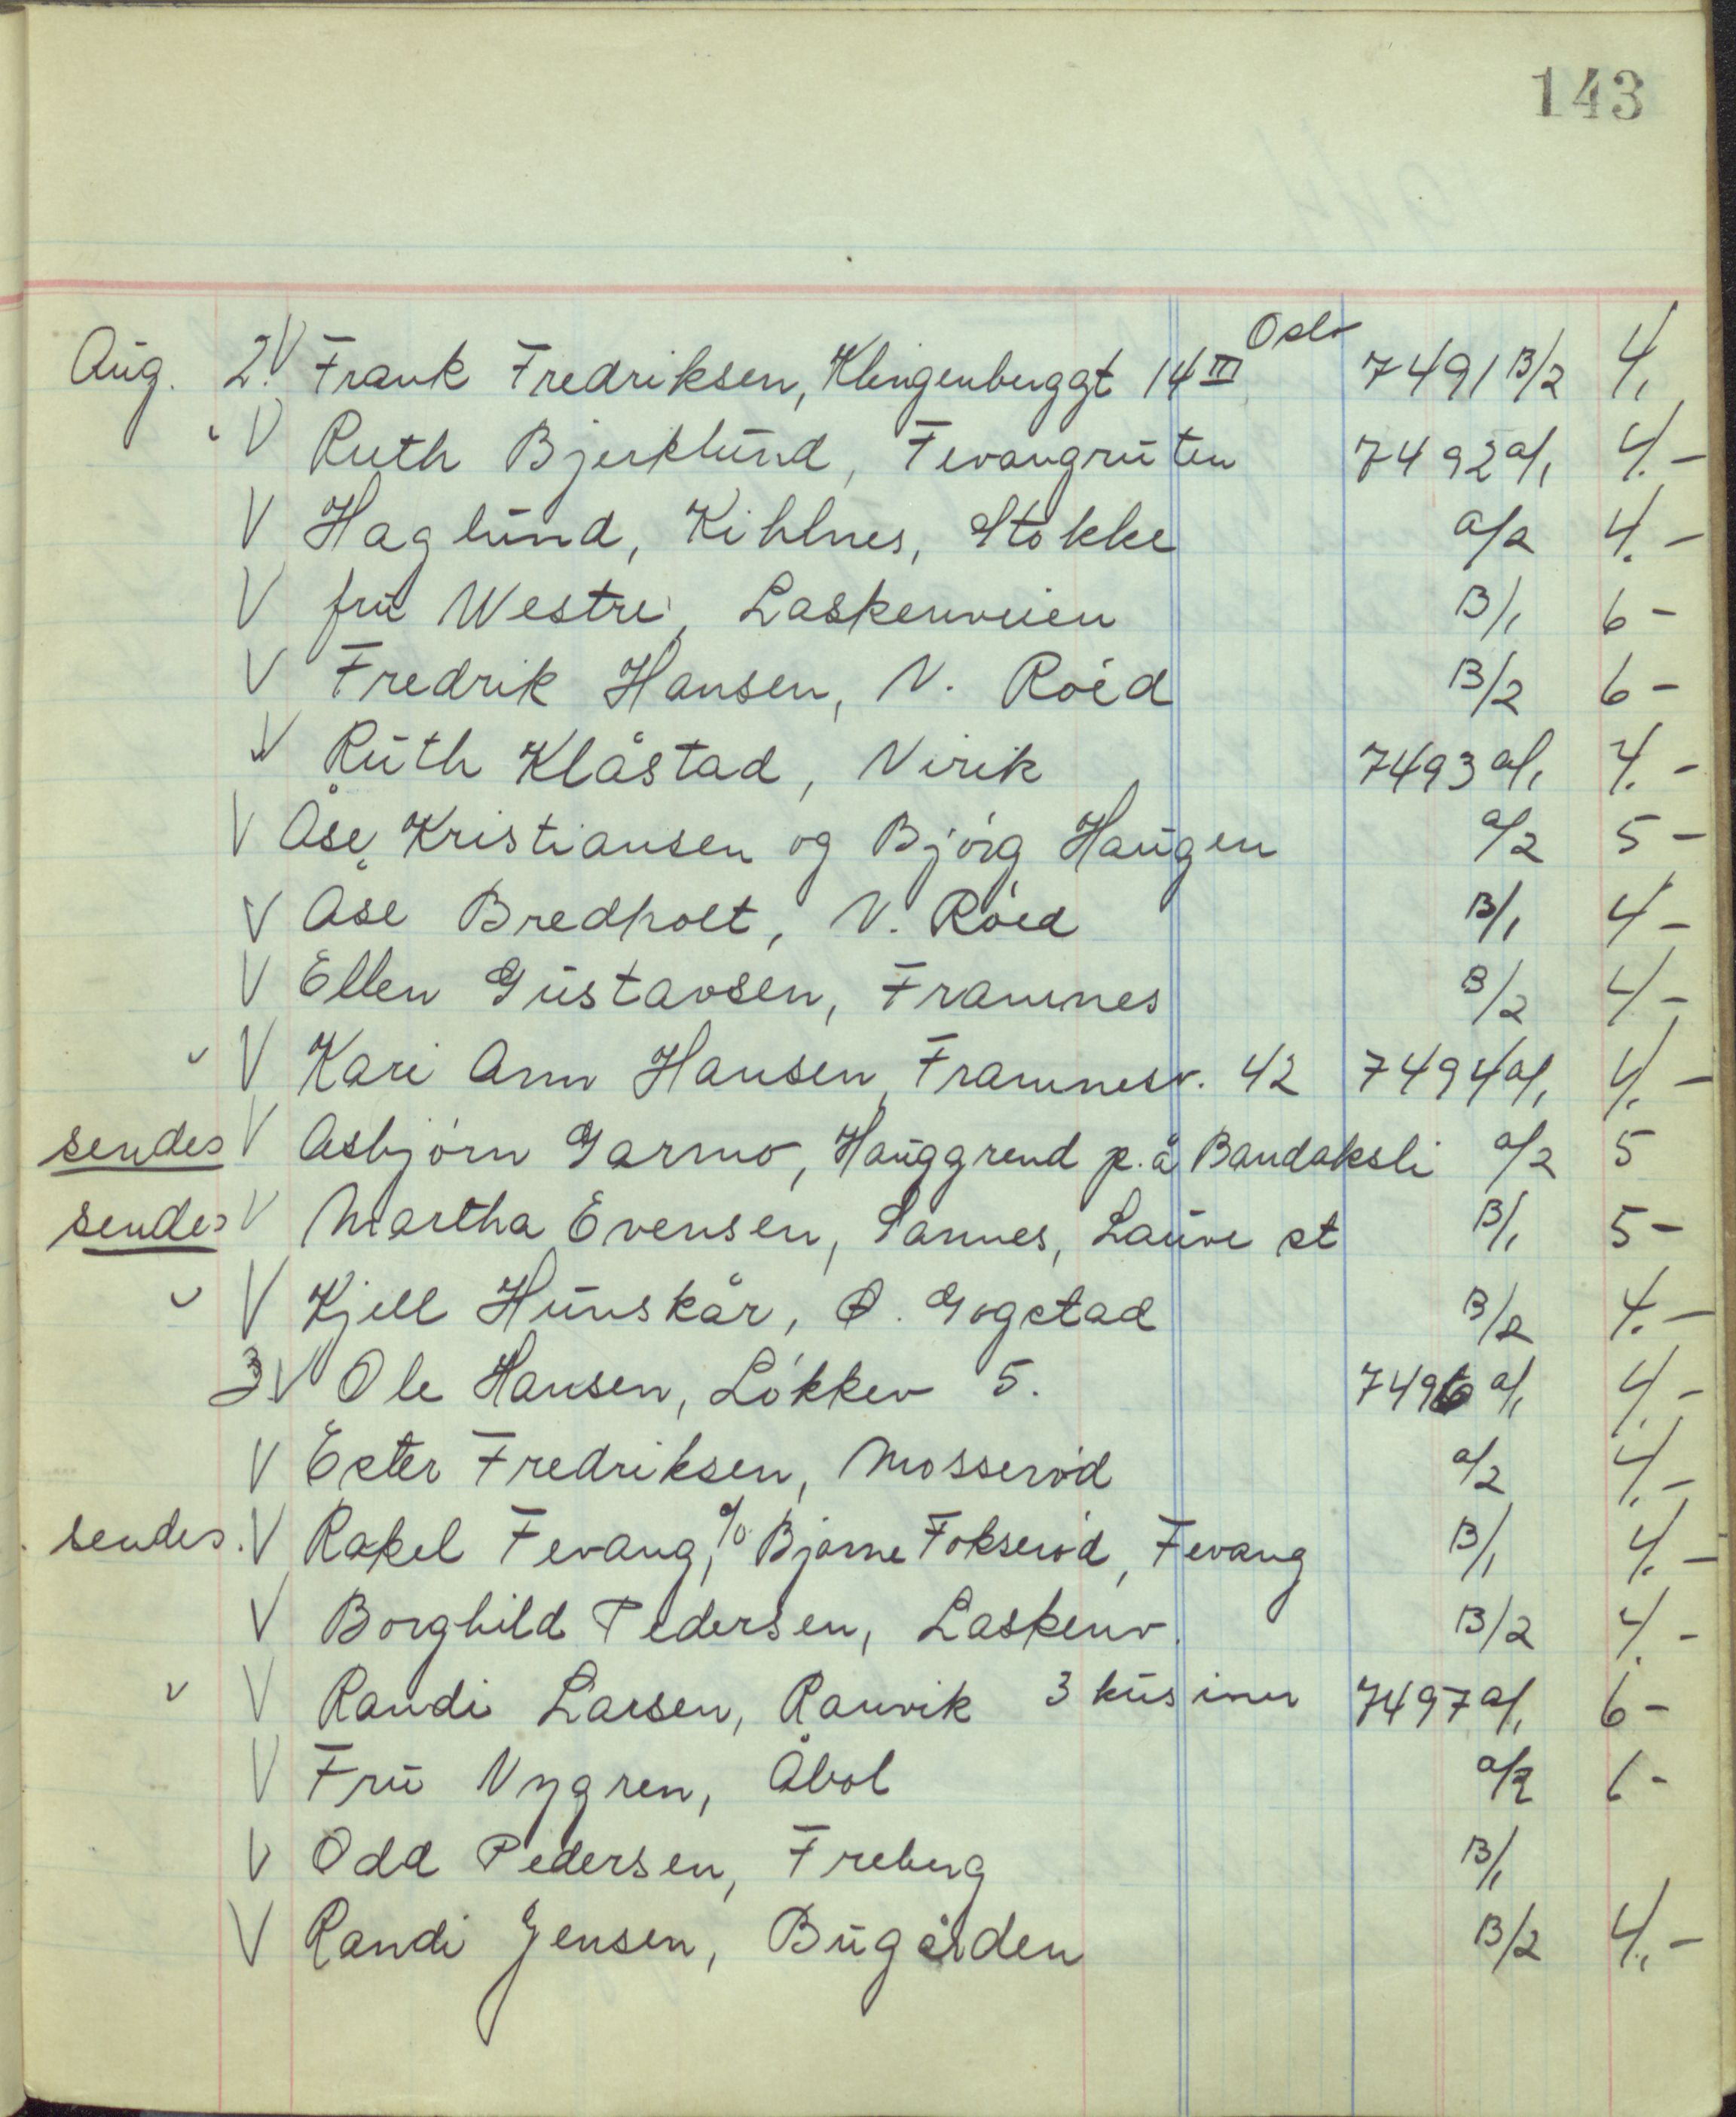 143
Aug. 2. V Frank Fredriksen, Klingenberggt 14 III Oslo 7491 B/2 4,
V Ruth Bjerklund, Fevangruten 7492 a/1 4.-
V Haglund, Kihlnes, Stokke a/2 4.-
V fru Westre, Laskenveien B/1 6-
V Fredrik Hansen, V. Röed B/2 6-
V Ruth Klåstad, Virik 7493 a/1 4.-
V Åse Kristiansen og Bjórg Haugen a/2 5-
V Åse Bredholt, V. Róed B/1 4-
V Ellen Gustavsen, Framnes B/2 4-
v V Kari Ann Hansen, Framnesv. 42 7494 a/1 4.-
sendes V Asbjórn Garmo, Hauggrend p.å Bandaksli a/2 5
sendes V Martha Evensen, Sannes, Lauve st B/1 5-
v V Kjell Hunskår, Ø. Gogstad B/2 4.-
3 V Ole Hansen, Lókkev 5. 7496 a/1 4.-
V Ester Fredriksen, Mosseród a/2 4.-
sendes. V Rakel Fevang, c/o Bjarne Fokseród, Fevang B/1 4.-
V Borghild Pedersen, Laskenv. B/2 4.-
v V Randi Larsen, Ranvik 3 kusiner 7497 a/1 6-
V Fru Nygren, Åbol a/2 6-
V Odd Pedersen, Freberg B/1
V Randi Jensen, Bugården B/2 4.,-